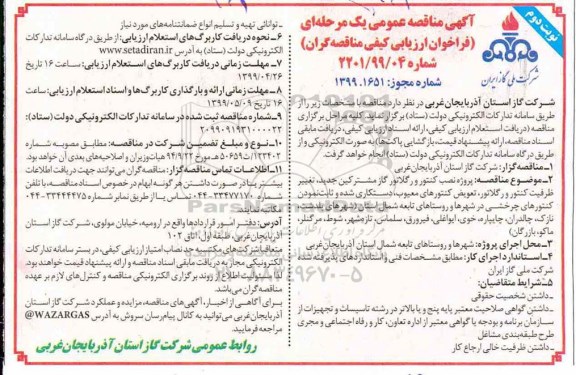 نوبت دوم
آگهی مناقصه عمومی یک مرحله‌ای
(فراخوان ارزیابی کیفی مناقصه‌گران)
شماره ۲۲۰۱/۹۹/۰۴
شماره مجوز: ۱۳۹۹.۱۶۵۱
شرکت ملی گاز ایران
شرکت گاز استان آذربایجان‌غربی در نظر دارد مناقصه با مشخصات زیر را از
طریق سامانه تدارکات الکترونیکی دولت (ستاد) برگزار نماید. کلیه مراحل برگزاری
مناقصه (دریافت استعلام ارزیابی کیفی، ارائه اسناد ارزیابی کیفی، دریافت مابقی
اسناد مناقصه، ارائه پیشنهاد قیمت، بازگشایی پاکت‌ها) به صورت الکترونیکی و از
طریق درگاه سامانه تدارکات الکترونیکی دولت (ستاد) انجام خواهد گرفت.
۱- مناقصه‌گزار: شرکت گاز استان آذربایجان‌غربی
۲- موضوع مناقصه: پروژه نصب کنتور و رگلاتور گاز مشترکین جدید، تغییر
ظرفیت کنتور و رگلاتور، تعویض کنتورهای معیوب، دستکاری شده و ثابت نمودن
کنتورهای چرخشی در شهرها و روستاهای تابعه شمال استان (شهرهای پلدشت،
نازک، چالدران، چایپاره، خوی، ایواغلی، فیرورق، سلماس، تازه‌شهر، شوط، مرگنلر،
ماکو، بازرگان)
۳- محل اجرای پروژه: شهرها و روستاهای تابعه شمال استان آذربایجان‌غربی
۴- استاندارد اجرای کار: مطابق مشخصات فنی و استانداردهای پذیرفته شده
شرکت ملی گاز ایران
۵- شرایط متقاضیان:
- داشتن شخصیت حقوقی
- داشتن گواهی صلاحیت معتبر پایه پنج و یا بالاتر در رشته تاسیسات و تجهیزات از
سازمان برنامه و بودجه یا گواهی معتبر از اداره تعاون، کار و رفاه اجتماعی و مجری
طرح طبقه‌بندی مشاغل
- داشتن ظرفیت خالی ارجاع کار
- توانائی تهیه و تسلیم انواع ضمانتنامه‌های مورد نیاز
۶- نحوه دریافت کاربرگ‌های استعلام ارزیابی: از طریق درگاه سامانه تدارکات
الکترونیکی دولت (ستاد) به آدرس www.setadiran.ir
۷- مهلت زمانی دریافت کاربرگ‌های استعلام ارزیابی: ساعت ۱۶ تاریخ
۱۳۹۹/۰۴/۲۶
۸- مهلت زمانی ارائه و بارگذاری کاربرگ‌ها و اسناد استعلام ارزیابی: ساعت
۱۶ تاریخ ۱۳۹۹/۰۵/۰۹
۹- شماره مناقصه ثبت شده در سامانه تدارکات الکترونیکی دولت (ستاد):
۲۰۹۹۰۹۱۹۳۱۰۰۰۰۲۲
۱۰- نوع و مبلغ تضمین شرکت در مناقصه: مطابق مصوبه شماره
۱۲۳۴۰۲/ت۵۰۶۵۹ه مورخ ۹۴/۹/۲۲ هیات‌وزیران و اصلاحیه‌های بعدی آن خواهد بود.
۱۱- اطلاعات تماس مناقصه‌گزار: مناقصه‌گران می‌توانند جهت دریافت اطلاعات
بیشتر و یا در صورت داشتن هرگونه ابهام در خصوص اسناد مناقصه، با تلفن
شماره ۳۳۴۷۷۱۷۰-۰۴۴ تماس و یا از طریق نمابر شماره ۳۳۴۴۴۴۷۵-۰۴۴
مکاتبه نمایند.
آدرس: دفتر امور قراردادها واقع در ارومیه، خیابان مولوی، شرکت گاز استان
آذربایجان‌غربی، طبقه اول، اتاق ۱۰۲
متعاقباً شرکت‌های مکتسبه حد نصاب امتیاز ارزیابی کیفی، در بستر سامانه تدارکات
الکترونیکی مجاز به دریافت مابقی اسناد مناقصه و ارائه پیشنهاد قیمت خواهند بود.
لذا مسئولیت اطلاع از روند برگزاری الکترونیکی مناقصه و کنترل‌های لازم بر عهده
مناقصه‌گران می‌باشد.
برای آگاهی از اخبار، آگهی‌های مناقصه، مزایده و عملکرد شرکت گاز استان
آذربایجان‌غربی می‌توانید به کانال پیام‌رسان سروش به آدرس WAZARGAS@
مراجعه فرمایید.
روابط عمومی شرکت گاز استان آذربایجان‌غربی